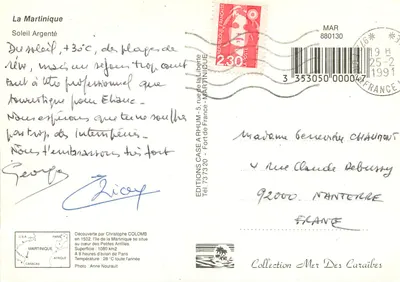 La Martinique
Soleil Argenté
MAR
880130
Du soleil, +30°C, des plages de
rêve, mais un séjour trop court
tant à titre professionnel que
touristique pour Eliane.
Nous espérons que tu ne souffres
pas trop des intempéries.
Nous t'embrassons très fort
Georges
2.30
EDITIONS CASE A RHUM - 5, rue de la Liberté
Tél. 73 73 20 - Fort de France - MARTINIQUE
3 353050 000047
25-2
1991
FRANCE
Madame Geneviève CHAUMONT
4 rue Claude Debussy
92000 NANTERRE
FRANCE
MARTINIQUE
CARACAS
Découverte par Christophe COLOMB
en 1502, l'île de la Martinique se situe
au cœur des Petites Antilles
Superficie : 1080 km2
A 8 heures d'avion de Paris
Température : 26° toute l'année
Photo : Anne Noprault
Collection Mer Des Caraïbes